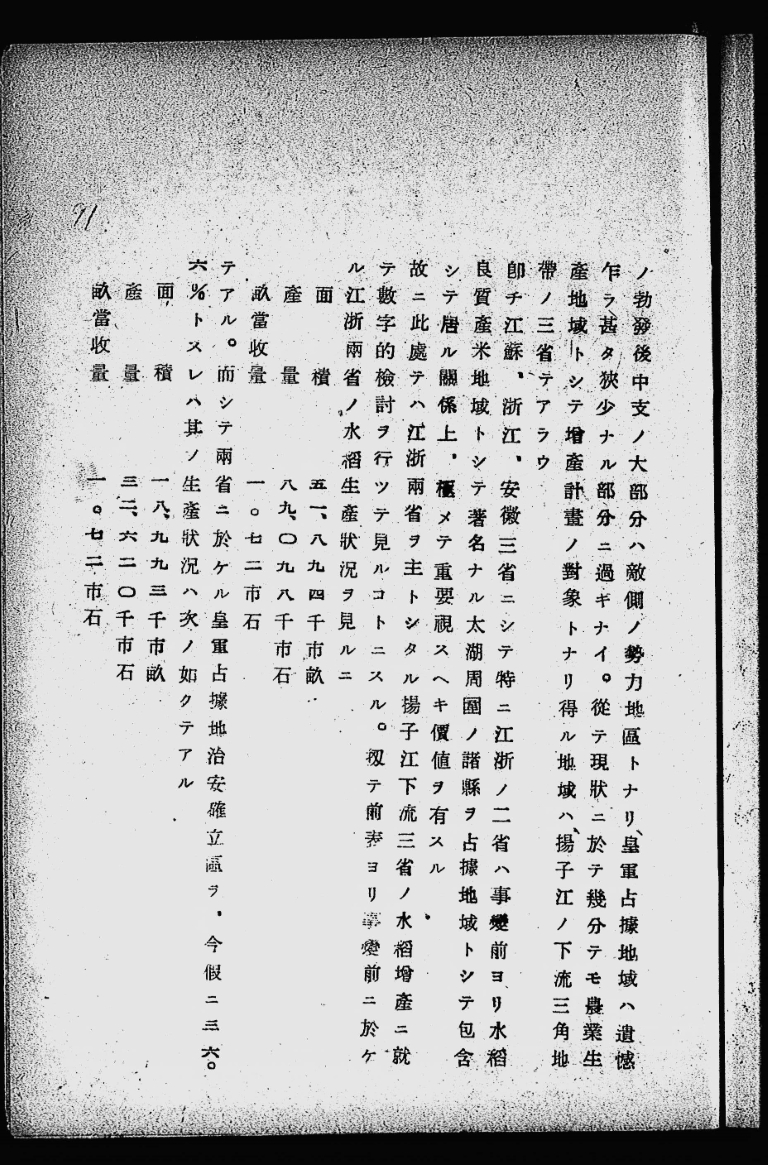 91
ノ勃發後中支ノ大部分ハ敵側ノ勢力地區トナリ皇軍占據地域ハ遺憾
乍ラ甚タ狹少ナル部分ニ過キナイ。從テ現狀ニ於テ幾分テモ農業生
產地域トシテ增產計畫ノ對象トナリ得ル地域ハ揚子江ノ下流三角地
帶ノ三省テアラウ
卽チ江蘇、浙江、安徽三省ニシテ特ニ江浙ノ二省ハ事變前ヨリ水稻
良質產米地域トシテ著名ナル太湖周圍ノ諸縣ヲ占據地域トシテ包含
シテ居ル關係上、極メテ重要視スヘキ價値ヲ有スル
故ニ此處テハ江浙兩省ヲ主トシタル揚子江下流三省ノ水稻增產ニ就
テ數字的檢討ヲ行ツテ見ルコトニスル。扨テ前表ヨリ事變前ニ於ケ
ル江浙兩省ノ水稻生產狀況ヲ見ルニ
面積 五一、八九四千市畝
產量 八九、〇九八千市石
畝當收量 一。七二市石
テアル。而シテ兩省ニ於ケル皇軍占據地治安確立區ヲ、今假ニ三六。
六%トスレハ其ノ生產狀況ハ次ノ如クテアル
面積 一八、九九三千市畝
產量 三二、六二〇千市石
畝當收量 一。七二市石